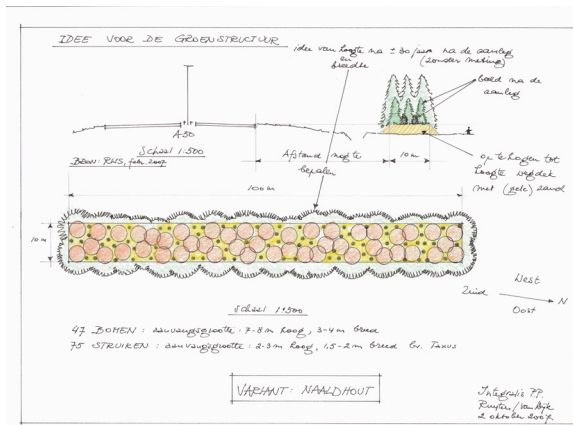 IDEE VOOR DE GROENSTRUCTUUR
idee van hoogte na ± 30 jaar na de aanleg
en breedte (zonder meting)
beeld na de
aanleg
A-50
Schaal 1:500
BRON: RWS, feb. 2007
Afstand nog te
bepalen
10 m
op te hogen tot
hoogte wegdek
met (gele) zand
100 m
10 m
West
Zuid
N
Oost
Schaal 1:500
47 BOMEN : aanvangsgrootte : 7-8 m hoog, 3-4 m breed
75 STRUIKEN : aanvangsgrootte : 2-3 m hoog, 1,5-2 m breed bv. Taxus
VARIANT: NAALDHOUT
Integralis P.P.
Ruyten / Van Dijk
2 oktober 2007